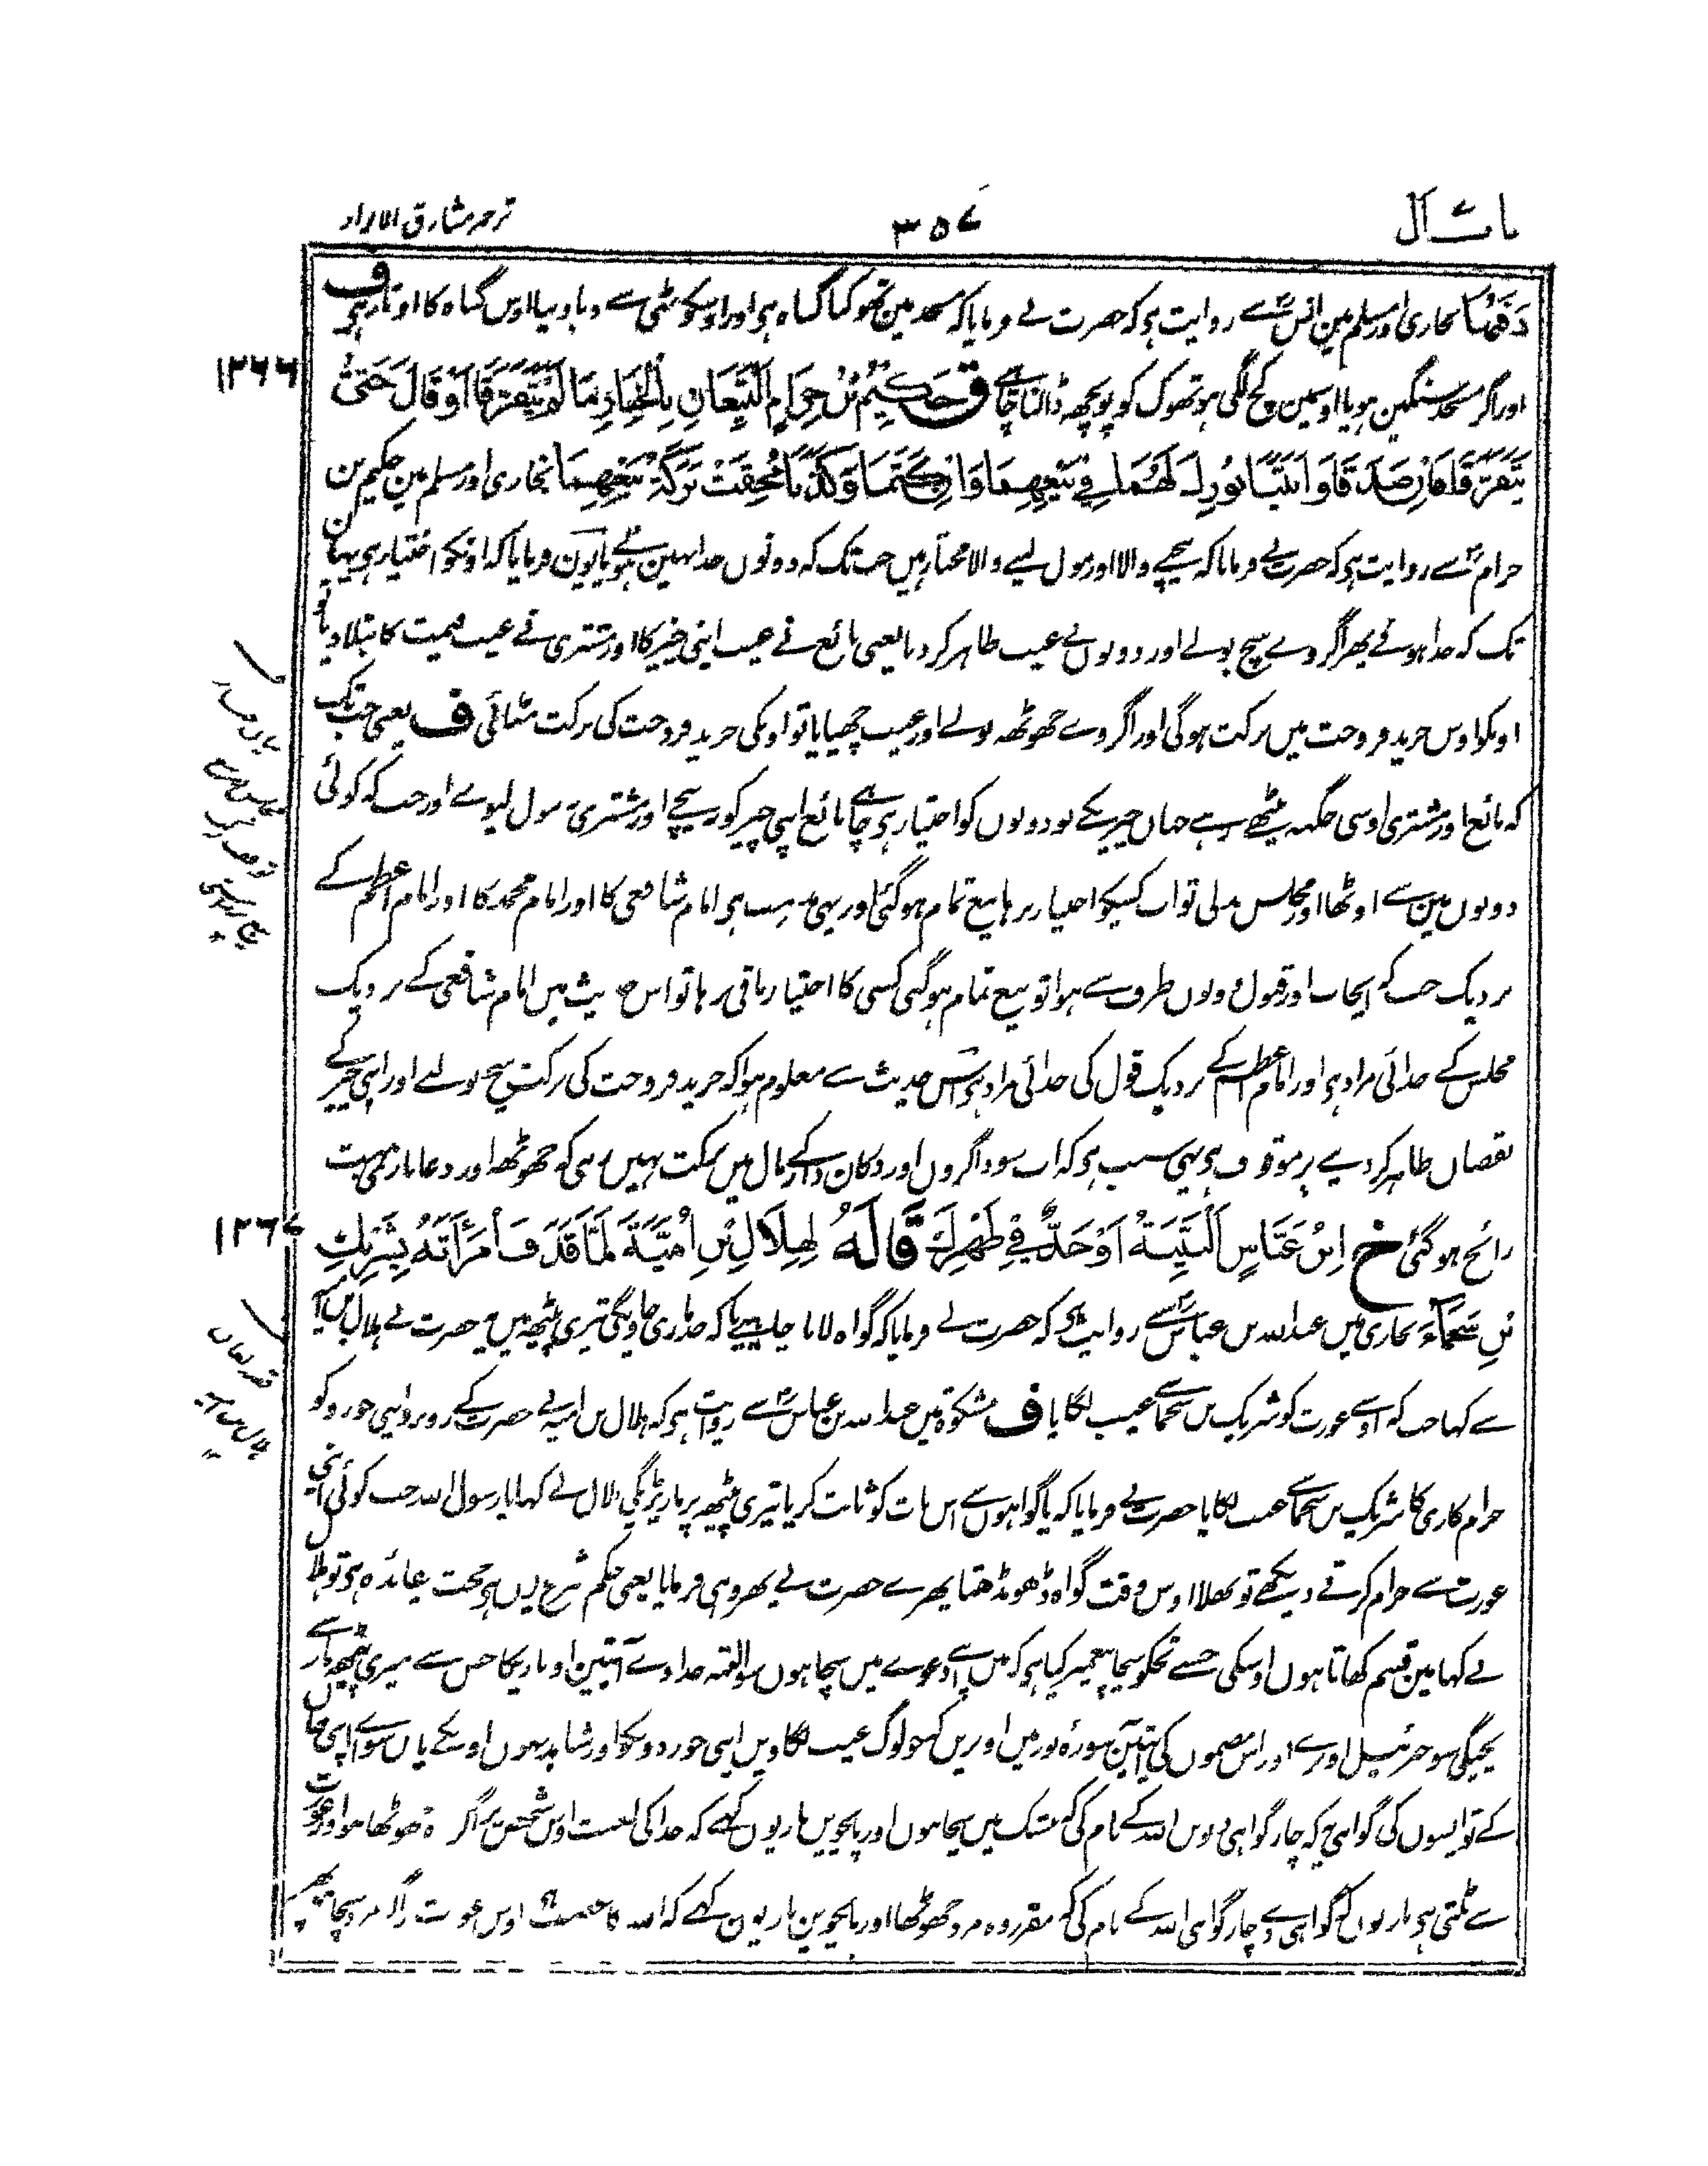 باب ال
۳۵۷
ترجمہ مشارق الانوار
دَفْنُهَا بخاری اور مسلم مین انس سے روایت ہی کہ حضرت نے فرمایا کہ مسجد مین تھوکنا گناہ ہی اور اوسکو مٹی سے دبا دینا اوس گناہ کا اوتار ہی ف
اور اگر مسجد سنگین ہو یا اوسمین گچ لگی ہو تھوک کو پونچھ ڈالنا چاہیے ق حَكِيْمُ بْنُ حِزَامٍ اَلْبَيِّعَانِ بِالْخِيَارِ مَا لَمْ يَتَفَرَّقَا اَوْ قَالَ حَتّٰى
۱۲۶۶
يَتَفَرَّقَا فَاِنْ صَدَقَا وَ بَيَّنَا بُوْرِكَ لَهُمَا فِيْ بَيْعِهِمَا وَاِنْ كَتَمَا وَكَذَبَا مُحِقَتْ بَرَكَةُ بَيْعِهِمَا بخاری اور مسلم مین حکیم بن
حزام سے روایت ہی کہ حضرت نے فرمایا کہ بیچنے والا اور مول لینے والا مختار ہین جب تک کہ دونوں جدا نہین ہوئے یا یون فرمایا کہ اونکو اختیار ہی یہان
تک کہ جدا ہوئے پھر اگر وے سچ بولے اور دونوں نے عیب ظاہر کر دیا یعنی بائع نے عیب اپنی چیز کا اور مشتری نے عیب قیمت کا بتلا دیا تو
اونکو اوس خرید فروخت میں برکت ہوگی اور اگر وے جھوٹھ بولے اور عیب چھپایا تو اونکی خرید فروخت کی برکت مٹائی ف یعنی جب تک
کہ بائع اور مشتری اوسی جگہ بیٹھے رہے جہاں چیز بکے تو دونوں کو اختیار ہی چاہے بائع اپنی چیز کو بیچے اور مشتری مول لیوے اور جب کہ کوئی
دونوں مین سے اوٹھا اور مجلس بدلی تو اب کسیکو اختیار نرہا بیع تمام ہو گئی اور یہی مذہب ہی امام شافعی کا اور امام محمد کا اور امام اعظم کے
نزدیک جب کہ ایجاب اور قبول دونوں طرف سے ہوا تو بیع تمام ہو گئی کسی کا اختیار باقی نرہا تو اس حدیث میں امام شافعی کے نزدیک
مجلس کے جدائی مراد ہی اور امام اعظم کے نزدیک قول کی جدائی مراد ہی اس حدیث سے معلوم ہوا کہ خرید فروخت کی برکت سچ بولنے اور اپنی چیز کے
نقصان ظاہر کر دینے پر موقوف ہی یہی سبب ہی کہ اب سوداگروں اور دکان داروں کے مال میں برکت نہیں رہی کہ جھوٹھ اور دغابازی بہت
رائج ہو گئی خ اِبْنُ عَبَّاسٍ اَلْبَيِّنَةُ اَوْ حَدٌّ فِيْ ظَهْرِكَ قَالَهُ لِهِلَالِ بْنِ اُمَيَّةَ لَمَّا قَذَفَ امْرَأَتَهُ بِشَرِيْكِ
۱۲۶۷
بْنِ سَحْمَاءَ بخاری میں عبداللہ بن عباس سے روایت ہی کہ حضرت نے فرمایا کہ گواہ لانا چاہیے یا کہ حد ماری جاویگی تیری پیٹھ میں یہ حضرت نے ہلال بن امیہ
سے کہا جب کہ اوسنے عورت کو شریک بن سحما سے عیب لگایا ف مشکوۃ میں عبداللہ بن عباس سے روایت ہی کہ ہلال بن امیہ نے حضرت کے روبرو اپنی جورو کو
حرام کاری کا شریک بن سحما سے عیب لگایا حضرت نے فرمایا کہ یا گواہوں سے اس بات کو ثابت کر یا تیری پیٹھ پر مار پڑیگی ہلال نے کہا یا رسول اللہ جب کوئی اپنی
عورت سے حرام کرتے دیکھے تو بھلا اوس وقت گواہ ڈھونڈھتا پھرے حضرت نے پھر وہی فرمایا یعنی حکم شرع یوں ہی حجت بے فائدہ ہی تو ہلال
نے کہا مین قسم کھاتا ہوں اوسکی جسنے تجکو سچا پیغمبر کیا ہی کہ میں اپنے دعوے میں سچا ہوں سو البتہ خدا وے آیتین اوتاریگا جس سے میری پیٹھ مار سے
بچیگی سو جبرئیل اوترے اور اس مضمون کی آیتین سورہ نور میں اوتریں کہ جو لوگ عیب لگاویں اپنی جورووں کو اور شاہد نہوں اونکے پاس سوائے اپنی جان
کے تو ایسوں کی گواہی یہ کہ چار گواہی دیں اللہ کے نام کی کہ بیشک میں سچا ہوں اور پانچویں بار یوں کہے کہ خدا کی لعنت اوس شخص پر اگر جھوٹھا ہو اور عورت
سے ٹلتی ہی مار یوں کہ گواہی دے چار گواہی اللہ کے نام کی کہ مقرر وہ مرد جھوٹھا اور پانچوین بار یون کہے کہ اللہ کا غضب اوس عورت پر اگر مرد سچا ہی پھر
قصہ لعان
ہلال بن امیہ